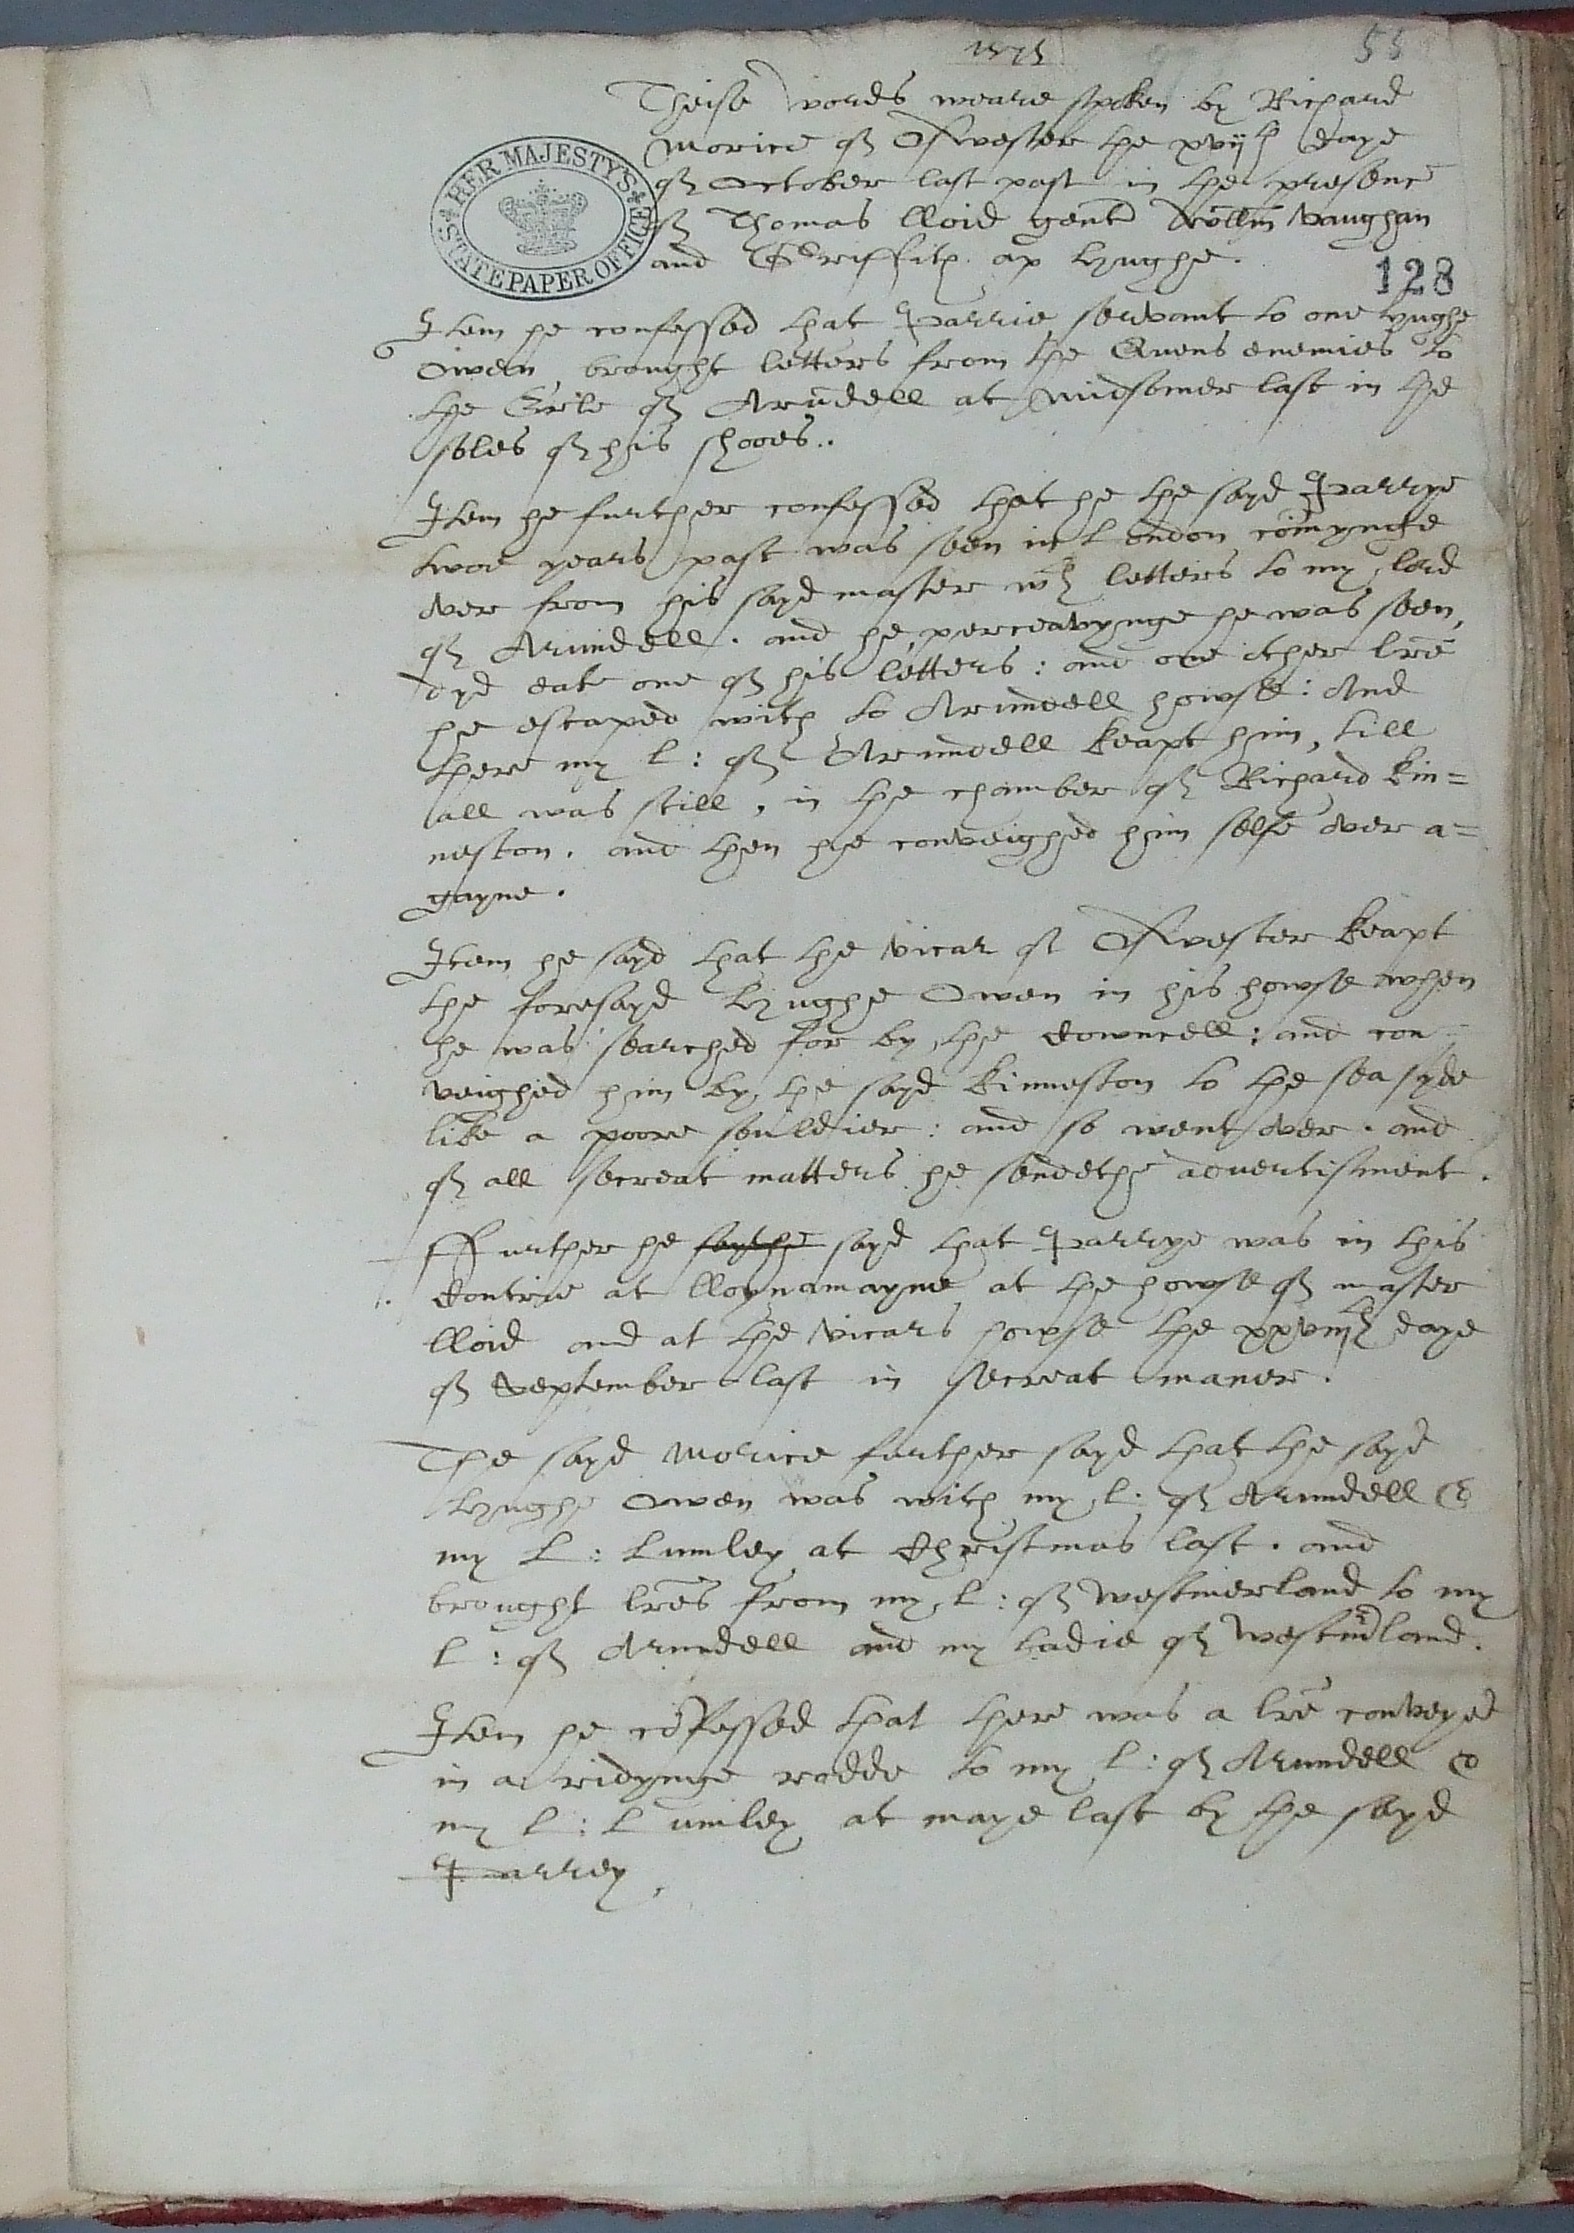 1575
55
Theise wordes weare spoken by Richard
Morice of Oswester the xvijth daye
of October last past in the presenc
of Thomas lloid gent Willm Vaughan
and Griffith ap Hughe.
HER MAJESTY'S
STATE PAPER OFFICE
128
Item he confessed that Parrie servant to one Hughe
Owen, brought letters from the Quens enemies to
the Erle of Arundell at midsomer last in the
soles of his shooes..
Item he further confessed that he the sayd Parrye
twoe years past was seen in London comynge
over from his sayd master wth letters to my lord
of Arundell. and he, perceavynge he was seen,
dyd eate one of his letters: and one other lre
he escaped with to Arundell howse: And
there my l: of Arundell keapt him, till
all was still, in the chamber of Richard Kin=
neston. and then he conveighed him selfe over a=
gayne.
Item he sayd that the vicar of Oswester keapt
the foresayd Hughe Owen in his howse when
he was searched for by the Councell: and con
veighed him by the sayd Kinneston to the sea syde
like a poore souldier: and so went over. and
of all secreat matters he sendethe advertisment.
Further he saythe sayd that Parrye was in this
Contrie at lloynamayne at the howse of master
lloid and at the vicars howse the xxviijth daye
of September last in secreat maner.
The sayd Morice further sayd that the sayd
Hughe Owen was with my l: of Arundell &
my L: Lumley at Christmas last. and
brought lres from my l: of Westmerland to my
l: of Arundell and my Ladie of Westmrland.
Item he cofessed that there was a lre conveyed
in a ridynge rodde to my l: of Arundell &
my l: Lumley at maye last by the sayd
Parrey.